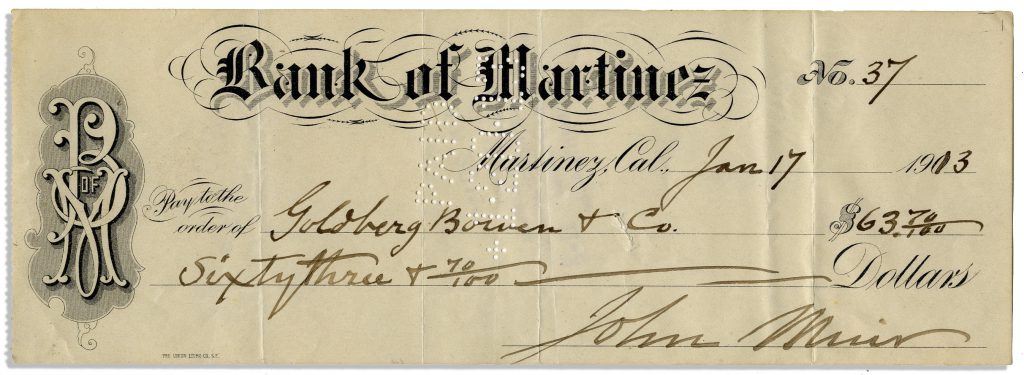 Bank of Martinez
No. 37
Martinez, Cal., Jan 17 1913
B OF M
Pay to the order of Goldberg Bowen & Co. $63.70/100
Sixty three & 70/100 Dollars
John Muir